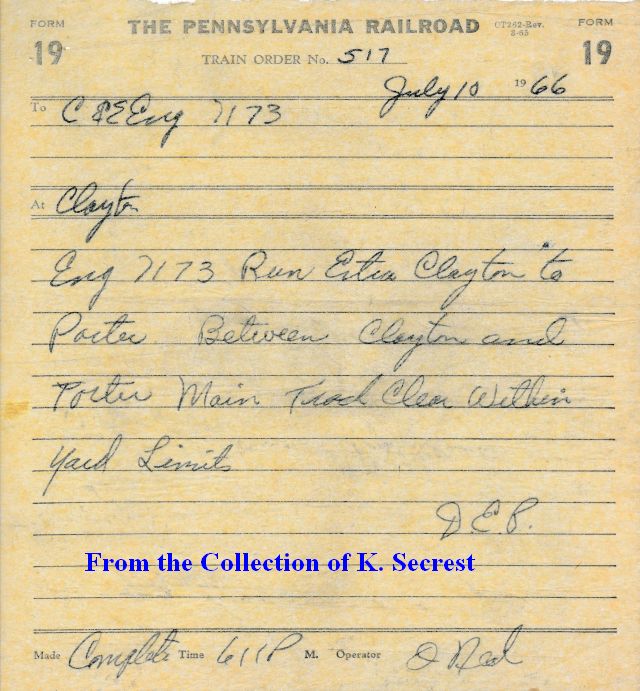 FORM 19 THE PENNSYLVANIA RAILROAD CT262-Rev. 3-65 FORM 19
TRAIN ORDER No. 517
July 10 1966
To C&E Eng 7173
At Clayton
Eng 7173 Run Extra Clayton to
Porter Between Clayton and
Porter Main Track Clear Within
Yard Limits
D.E.P.
From the Collection of K. Secrest
Made Complete Time 611P M. Operator